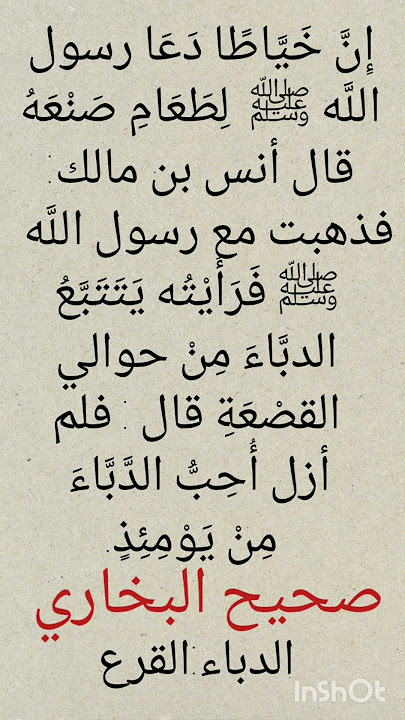 إِنَّ خَيَّاطًا دَعَا رسول
اللَّه ﷺ لِطَعَامِ صَنْعَهُ
قال أنس بن مالك:
فذهبت مع رسول اللَّه
ﷺ فَرَأَيْتُه يَتَتَبَّعُ
الدبَّاءَ مِنْ حوالي
القصْعَةِ قال : فلم
أزل أُحِبُّ الدَّبَّاءَ
مِنْ يَوْمِئِذٍ.
صحيح البخاري
الدباء:القرع
InShOt